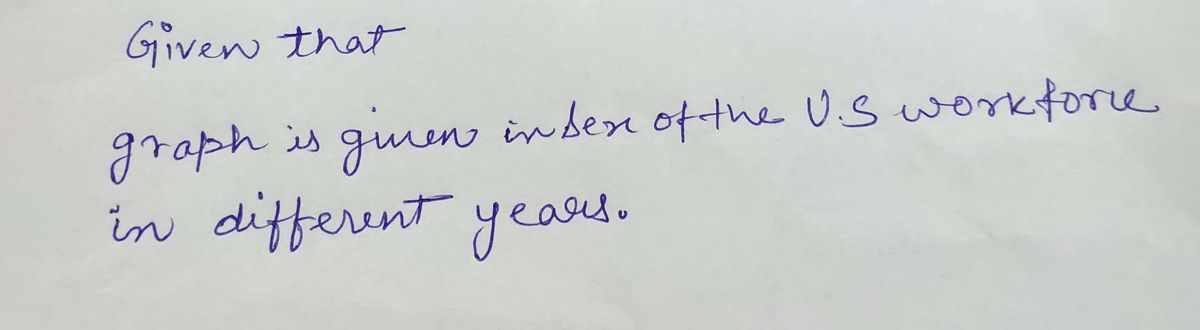 Given that
graph is given index of the U.S workforce
in different years.